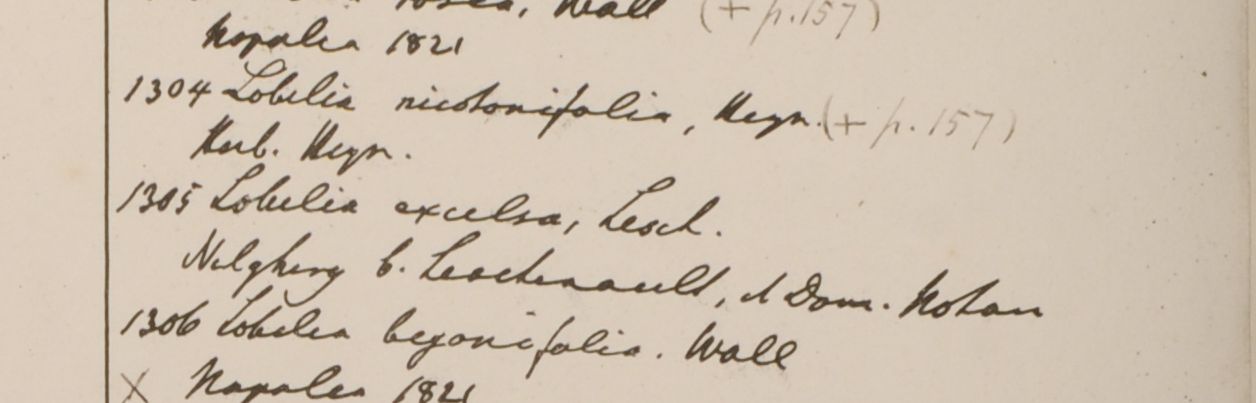 rosea, Wall (+ p.157)
Napalia 1821
1304 Lobelia nicotonifolia, Heyn. (+ p.157)
Herb. Heyn.
1305 Lobelia excelsa, Lesch.
Nilghery b. Leschenault, et Dom. Notan
1306 Lobelia begonifolia. Wall
X Napalia 1821